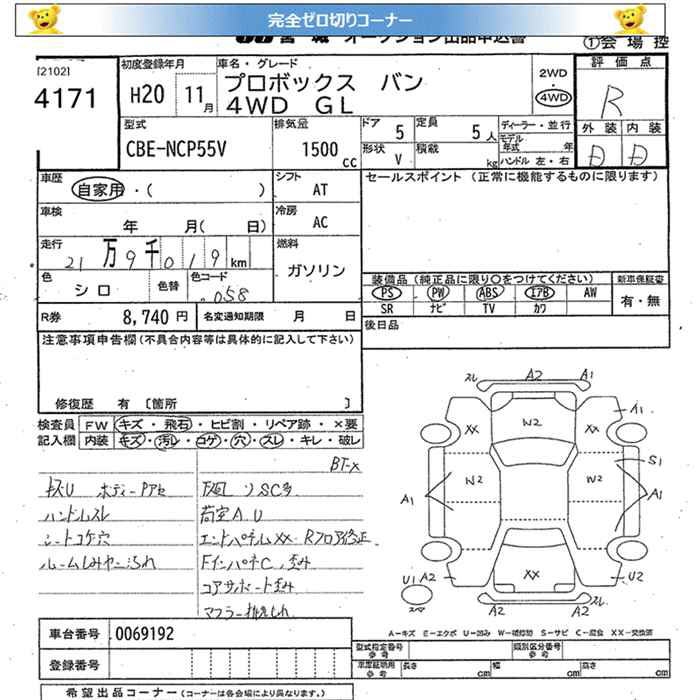 完全ゼロ切りコーナー
宮城 オークション出品申込書
①会場控
[2102]
4171
初度登録年月
H20 11月
車名・グレード
プロボックス バン
4WD GL
2WD
4WD
評価点
R
外装 内装
D D
型式
CBE-NCP55V
排気量
1500cc
ドア 5
形状 V
定員 5人
積載 kg
ディーラー・並行
モデル年式 年
ハンドル 左・右
車歴
自家用・( )
シフト AT
セールスポイント (正常に機能するものに限ります)
車検
年 月( 日)
冷房 AC
走行
21万9千019km
燃料 ガソリン
色 シロ
色替
色コード 058
装備品(純正品に限り○をつけてください)
PS PW ABS エアB AW
SR ナビ TV カワ
新車保証書
有・無
R券 8,740円
名変通知期限 月 日
後日品
注意事項申告欄(不具合内容等は具体的に記入して下さい)
修復歴 有 〔箇所 〕
検査員 FW キズ・飛石・ヒビ割・リペア跡・×要
記入欄 内装 キズ・汚レ・コゲ・穴・スレ・キレ・破レ
BT-X
キズU ボディーPアセ
ハンドルスレ
シートコゲ穴
ルームしみヤニ汚れ
下廻リSC多
荷室A.U
エンドパネルXX・Rフロア修正
FインパネC,歪み
コアサポート歪み
マフラー排気もれ
スレ A2 A1
XX W2 XX A1
A1 W2 W2 S1 A1
U1 A2 XX U2
スペア A2 A2 スレ
A-キズ E-エクボ U-凹み W-補修跡 S-サビ C-腐食 XX-交換済
車台番号 0069192
登録番号
型式指定番号 参考
類別区分番号 参考
車庫証明用 参考 長さ cm 幅 cm 高さ cm
希望出品コーナー (コーナーは各会場により異なります。)